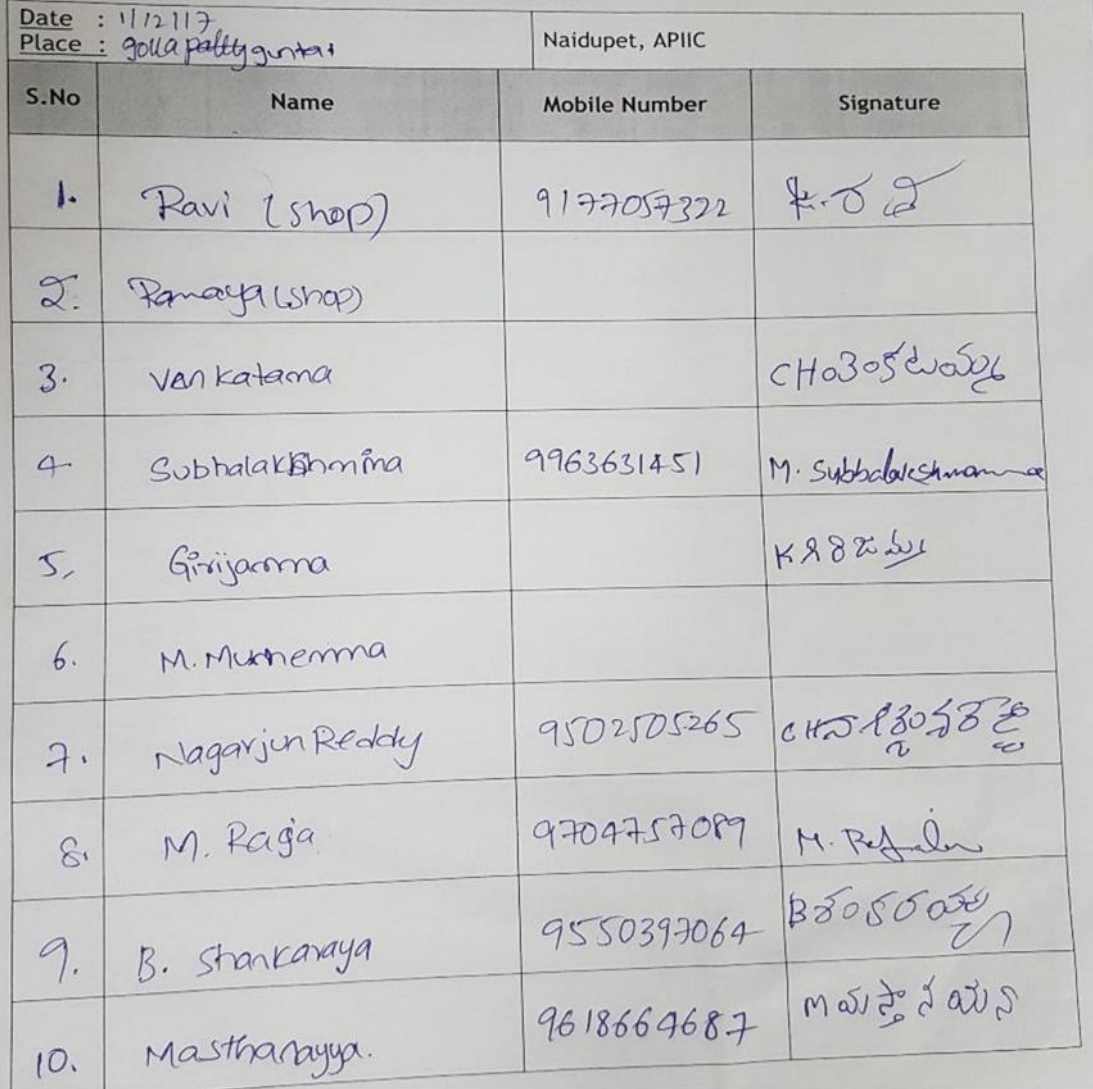 Date : 1/12/17
Place : gollapallyguntai Naidupet, APIIC
S.No Name Mobile Number Signature
1. Ravi (shop) 9177057322
2. Ramaya (shop)
3. Venkatama CH వెంకటమ్మ
4. Subhalakshmma 9963631451 M. Subbalakshmamma
5, Girijamma K గిరిజమ్మ
6. M. Munemma
7. Nagarjun Reddy 9502505265
8. M. Raja 9704757089
9. B. Shankaraya 9550397064 B శంకరయ్య
10. Masthanayya. 9618664687